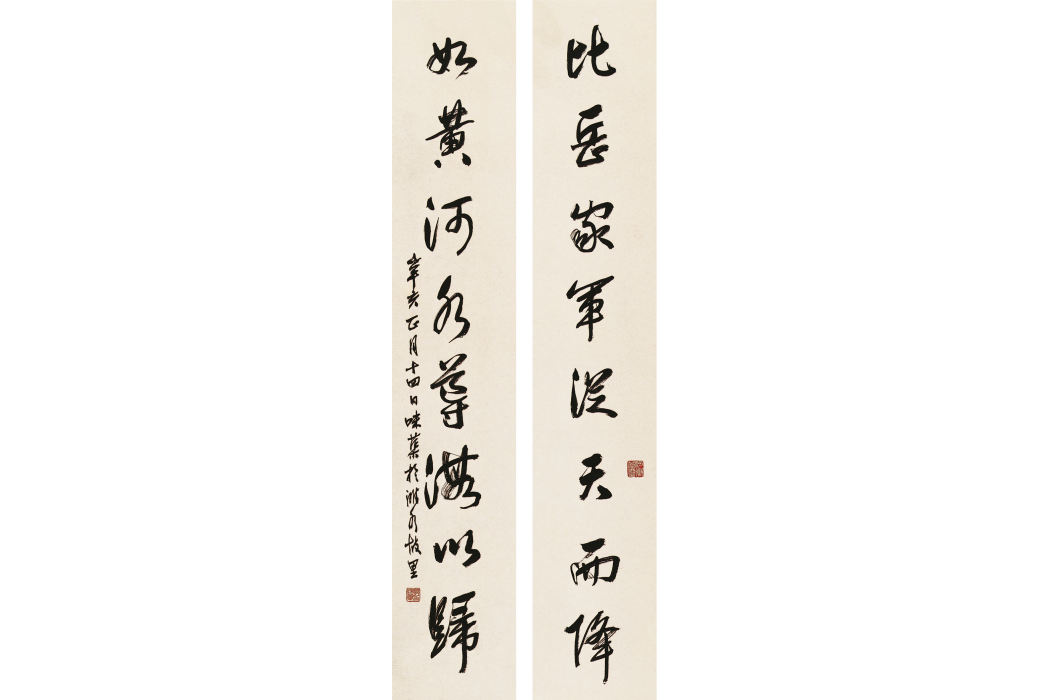 比岳家軍從天而降
如黃河水尊海以歸
辛亥正月十四日味蕖於濰水故里